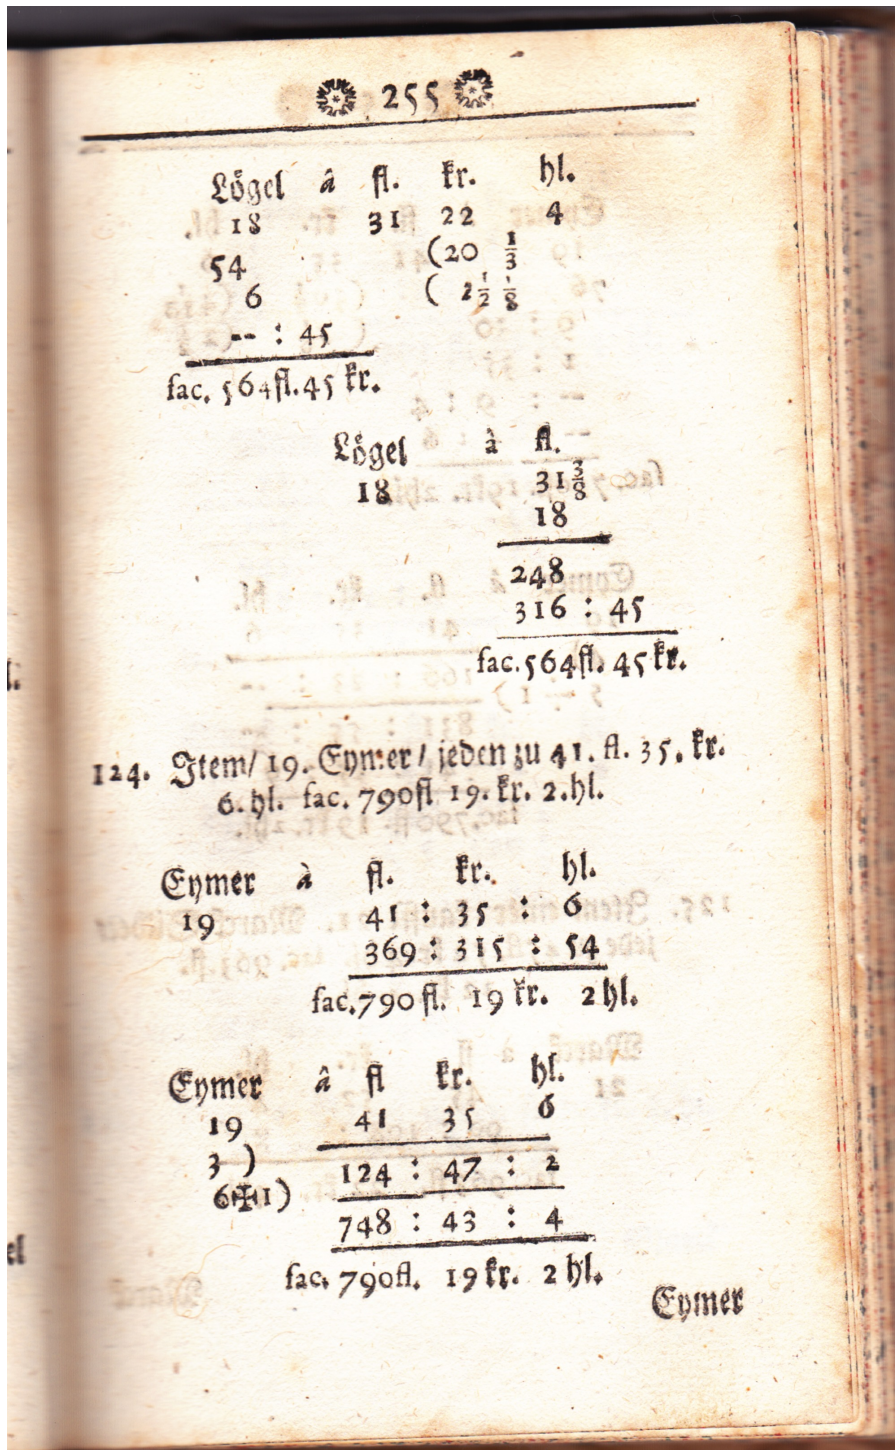 255
Lögel â fl. kr. hl.
18 31 22 4
54 (20 1/3
6 ( 2 1/2 1/8
-- : 45
fac. 564fl. 45 kr.
Lögel à fl.
18 31 3/8
18
248
316 : 45
fac. 564fl. 45 kr.
124. Item/ 19. Eymer / jeden zu 41. fl. 35. kr.
6. hl. fac. 790fl 19. kr. 2. hl.
Eymer à fl. kr. hl.
19 41 : 35 : 6
369 : 315 : 54
fac. 790 fl. 19 kr. 2 hl.
Eymer â fl kr. hl.
19 41 35 6
3 ) 124 : 47 : 2
6✠1) 748 : 43 : 4
fac. 790fl. 19 kr. 2 hl.
Eymer